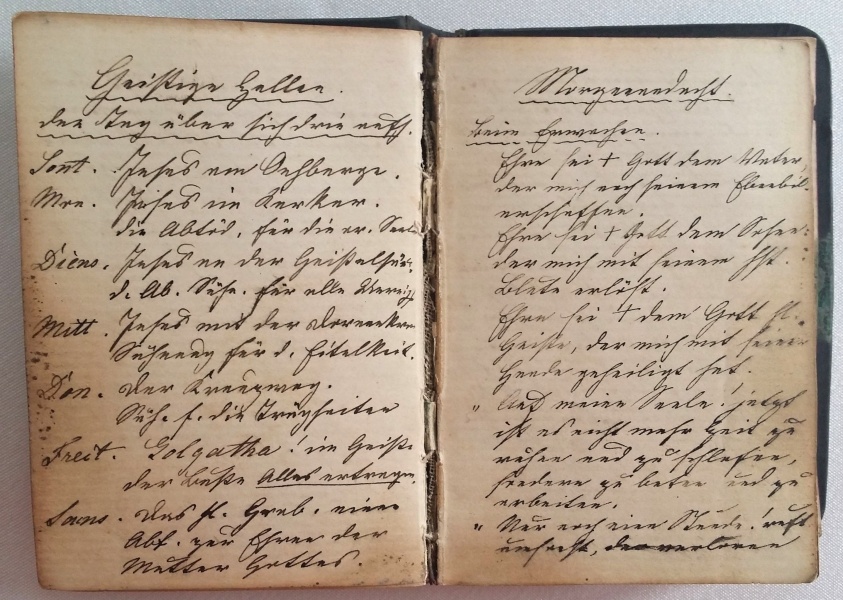 Geistige Zellen.
den Tag über sich drin aufh.
Sont. Jesus am Oehlberge.
Mon. Jesus im Kerker.
die Abtöd. für die ar. Seele
Diens. Jesus an der Geißelsäu
d. Ab. Süh. für alle
Mitt. Jesus mit der Dornenkro
Sühnung für d. Eitelkeit.
Don. der Kreuzweg.
Süh. f. die Trägheiten
Freit. Golgatha! im Geiste
der Buße Alles ertragen.
Sams. das hl. Grab. eine
Abt. zur Ehren der
Mutter Gottes.
Morgenandacht.
Beim Erwachen.
Ehre sei + Gott dem Vater,
der mich nach seinem Ebenbil-
erschaffen.
Ehre sei + Gott dem Sohne:
der mich mit seinem hst.
Blute erlöst.
Ehre sei + dem Gott hl.
Geiste, der mich mit seiner
Gnade geheiligt hat.
" Auf meine Seele! jetzt
ist es nicht mehr Zeit zu
ruhen und zu schlafen,
sondern zu beten und zu
arbeiten.
" Nur noch eine Stunde! ruft
umsonst, der verloren